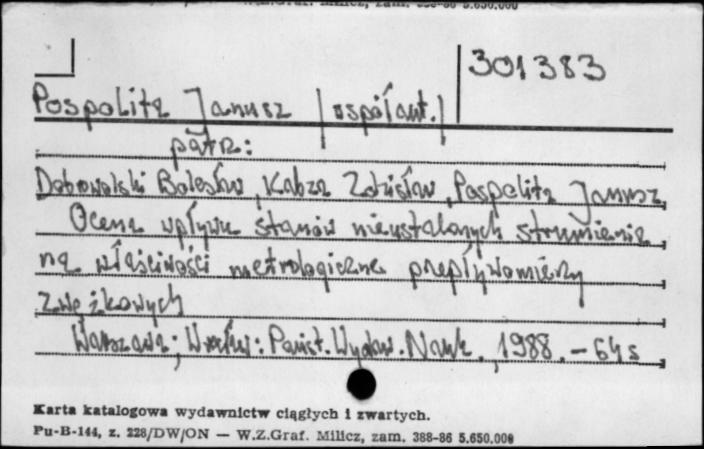 W.Z.Graf. Milicz, zam. 388-86 5.650.000
301383
Pospolita Janusz /współaut./
patrz:
Dobrowolski Bolesław, Kabza Zdzisław, Pospolita Janusz
Ocena wpływu stanów nieustalonych strumienia
na właściwości metrologiczne przepływomierzy
zwężkowych
Warszawa; Wrocław: Państ. Wydaw. Nauk., 1988. – 64 s
Karta katalogowa wydawnictw ciągłych i zwartych.
Pu-B-144, z. 228/DW/ON — W.Z.Graf. Milicz, zam. 388-86 5.650.000